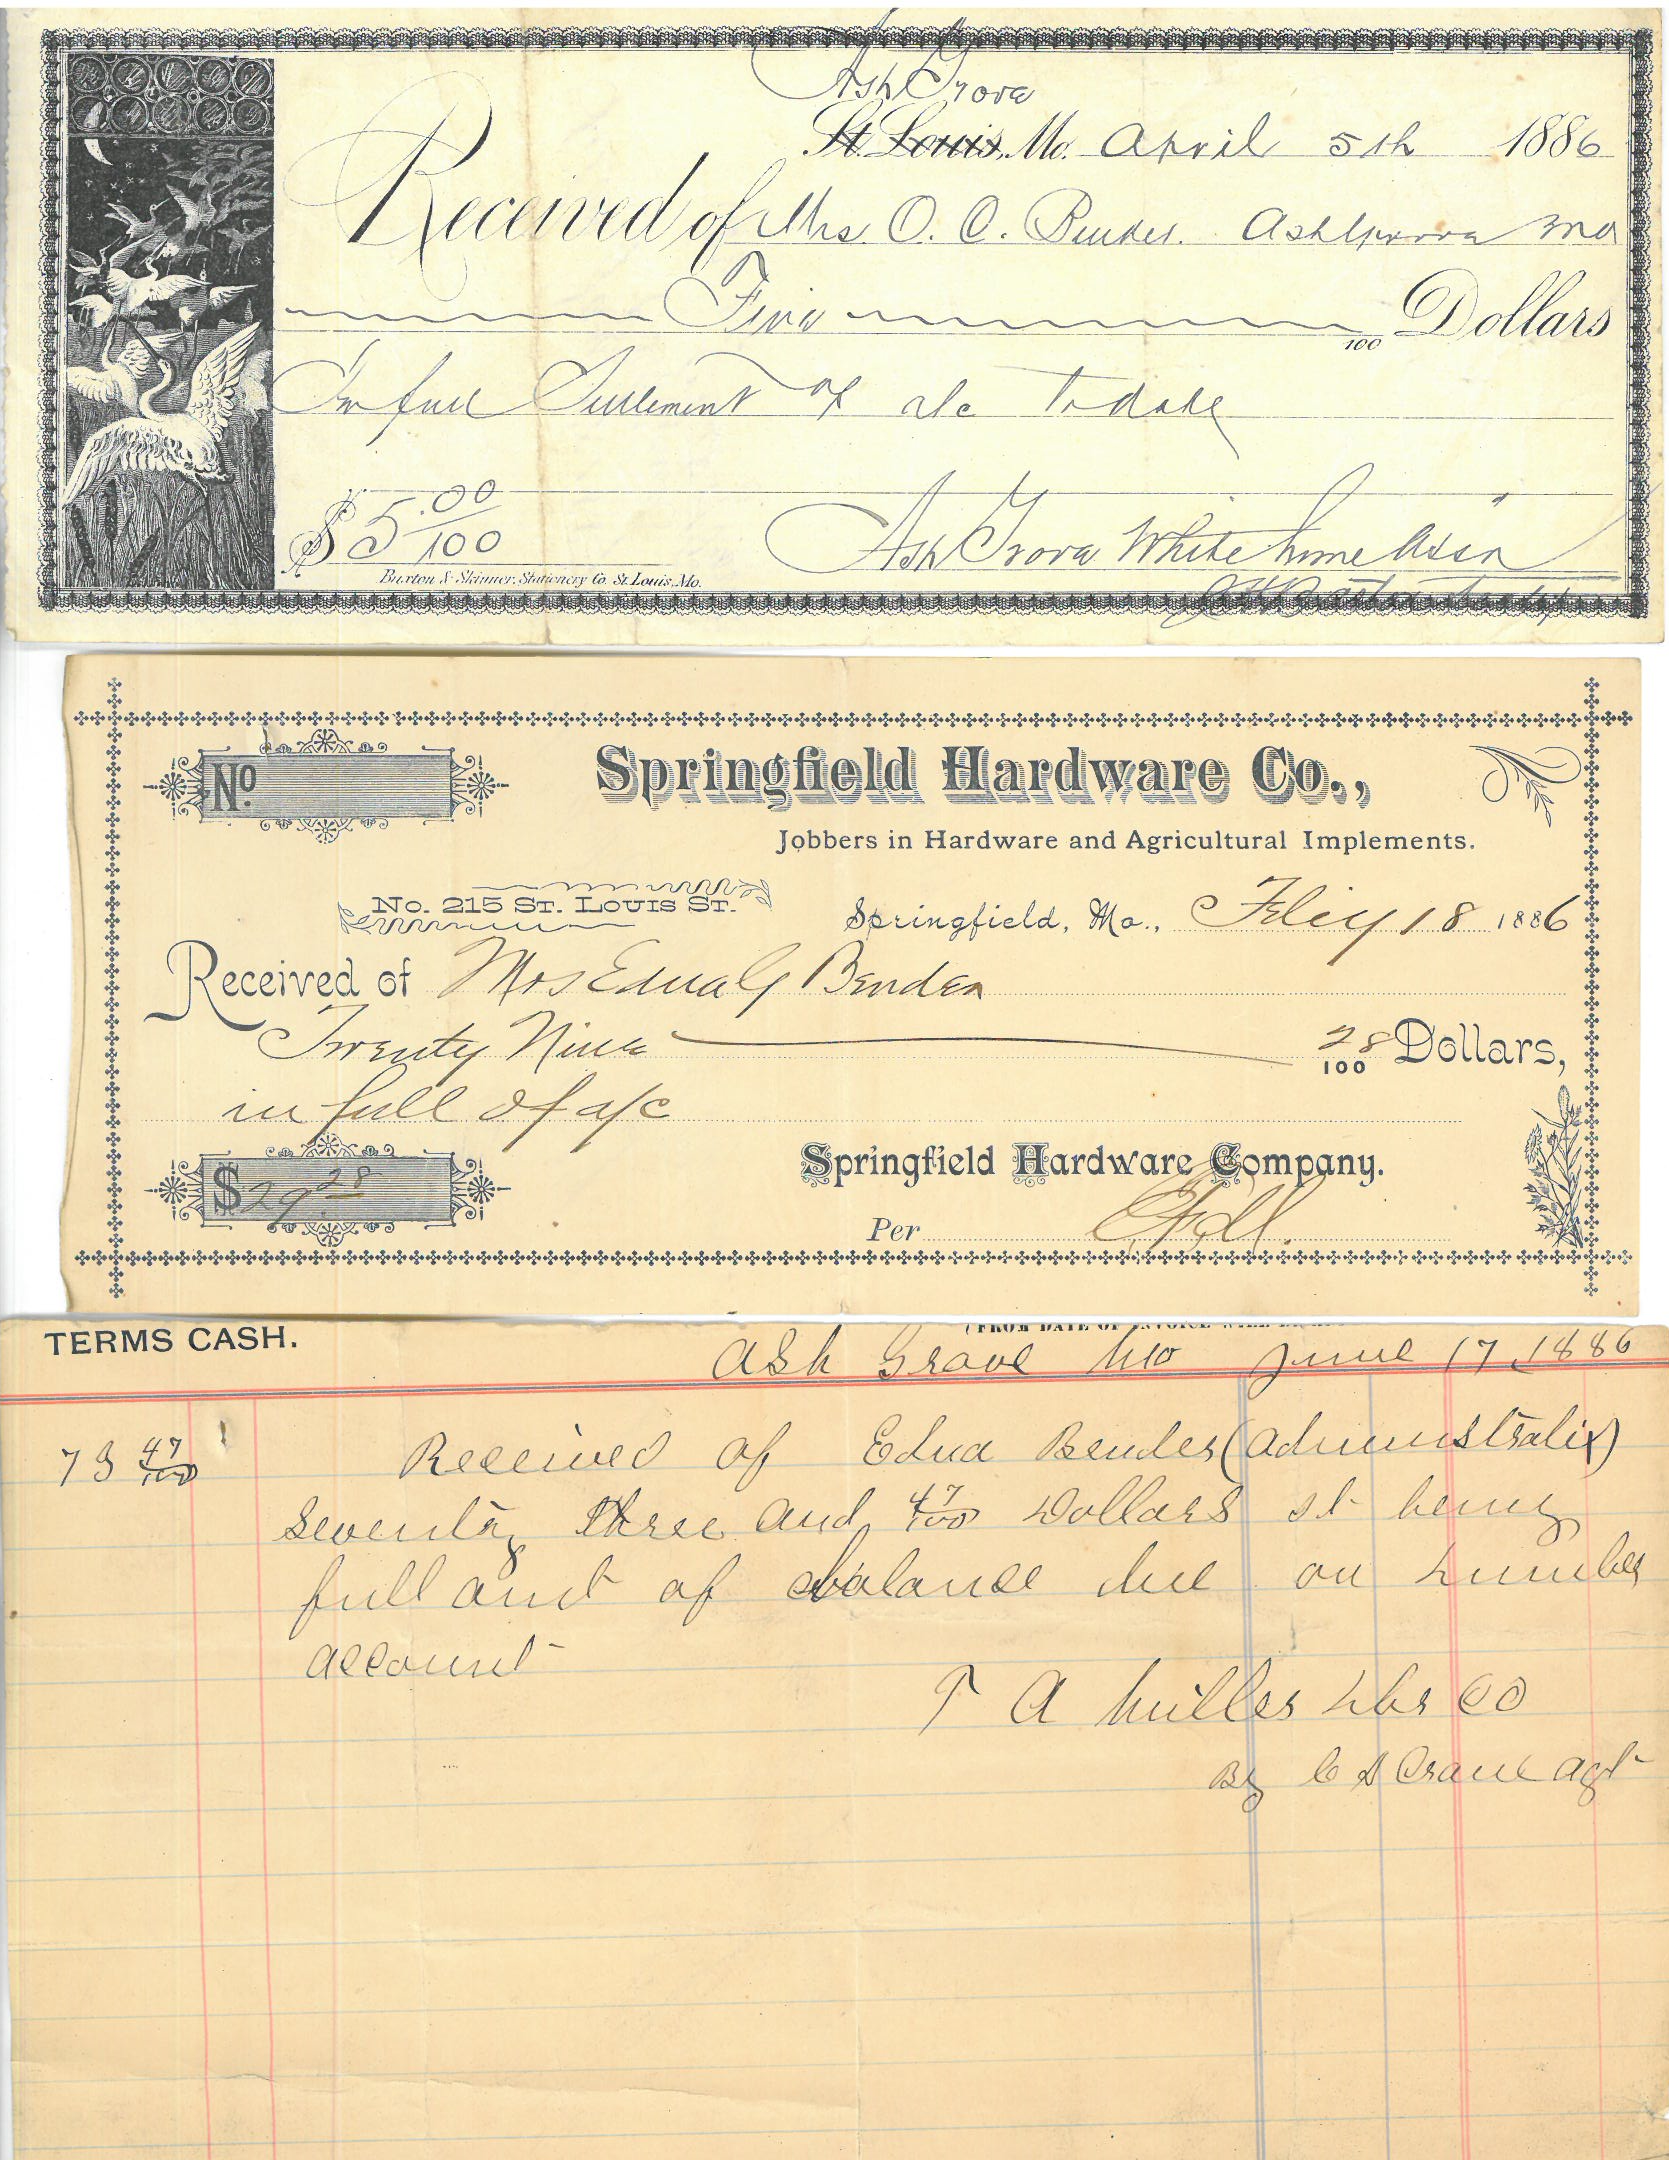 Ash Grove
St. Louis, Mo. April 5th 1886
Received of Mrs. O. C. Bender. Ashgrove Mo
Five 100 Dollars
In full Settlement of a/c to date
$5.00/100 Ash Grove White Lime Assn
Buxton & Skinner, Stationery Co. St. Louis, Mo.
No. Springfield Hardware Co.,
Jobbers in Hardware and Agricultural Implements.
No. 215 St. Louis St. Springfield, Mo., Feby 18 1886
Received of Mrs Edna G Bender
Twenty Nine 28/100 Dollars,
in full of a/c
Springfield Hardware Company.
$29.28
Per
(FROM DATE OF INVOICE
TERMS CASH.
Ash Grove Mo June 17, 1886
73 47/100 Received of Edna Bender (Administratix)
Seventy three and 47/100 Dollars it being
full amt of balance due on Lumber
account
T A Miller Lbr Co
By C S Crane agt